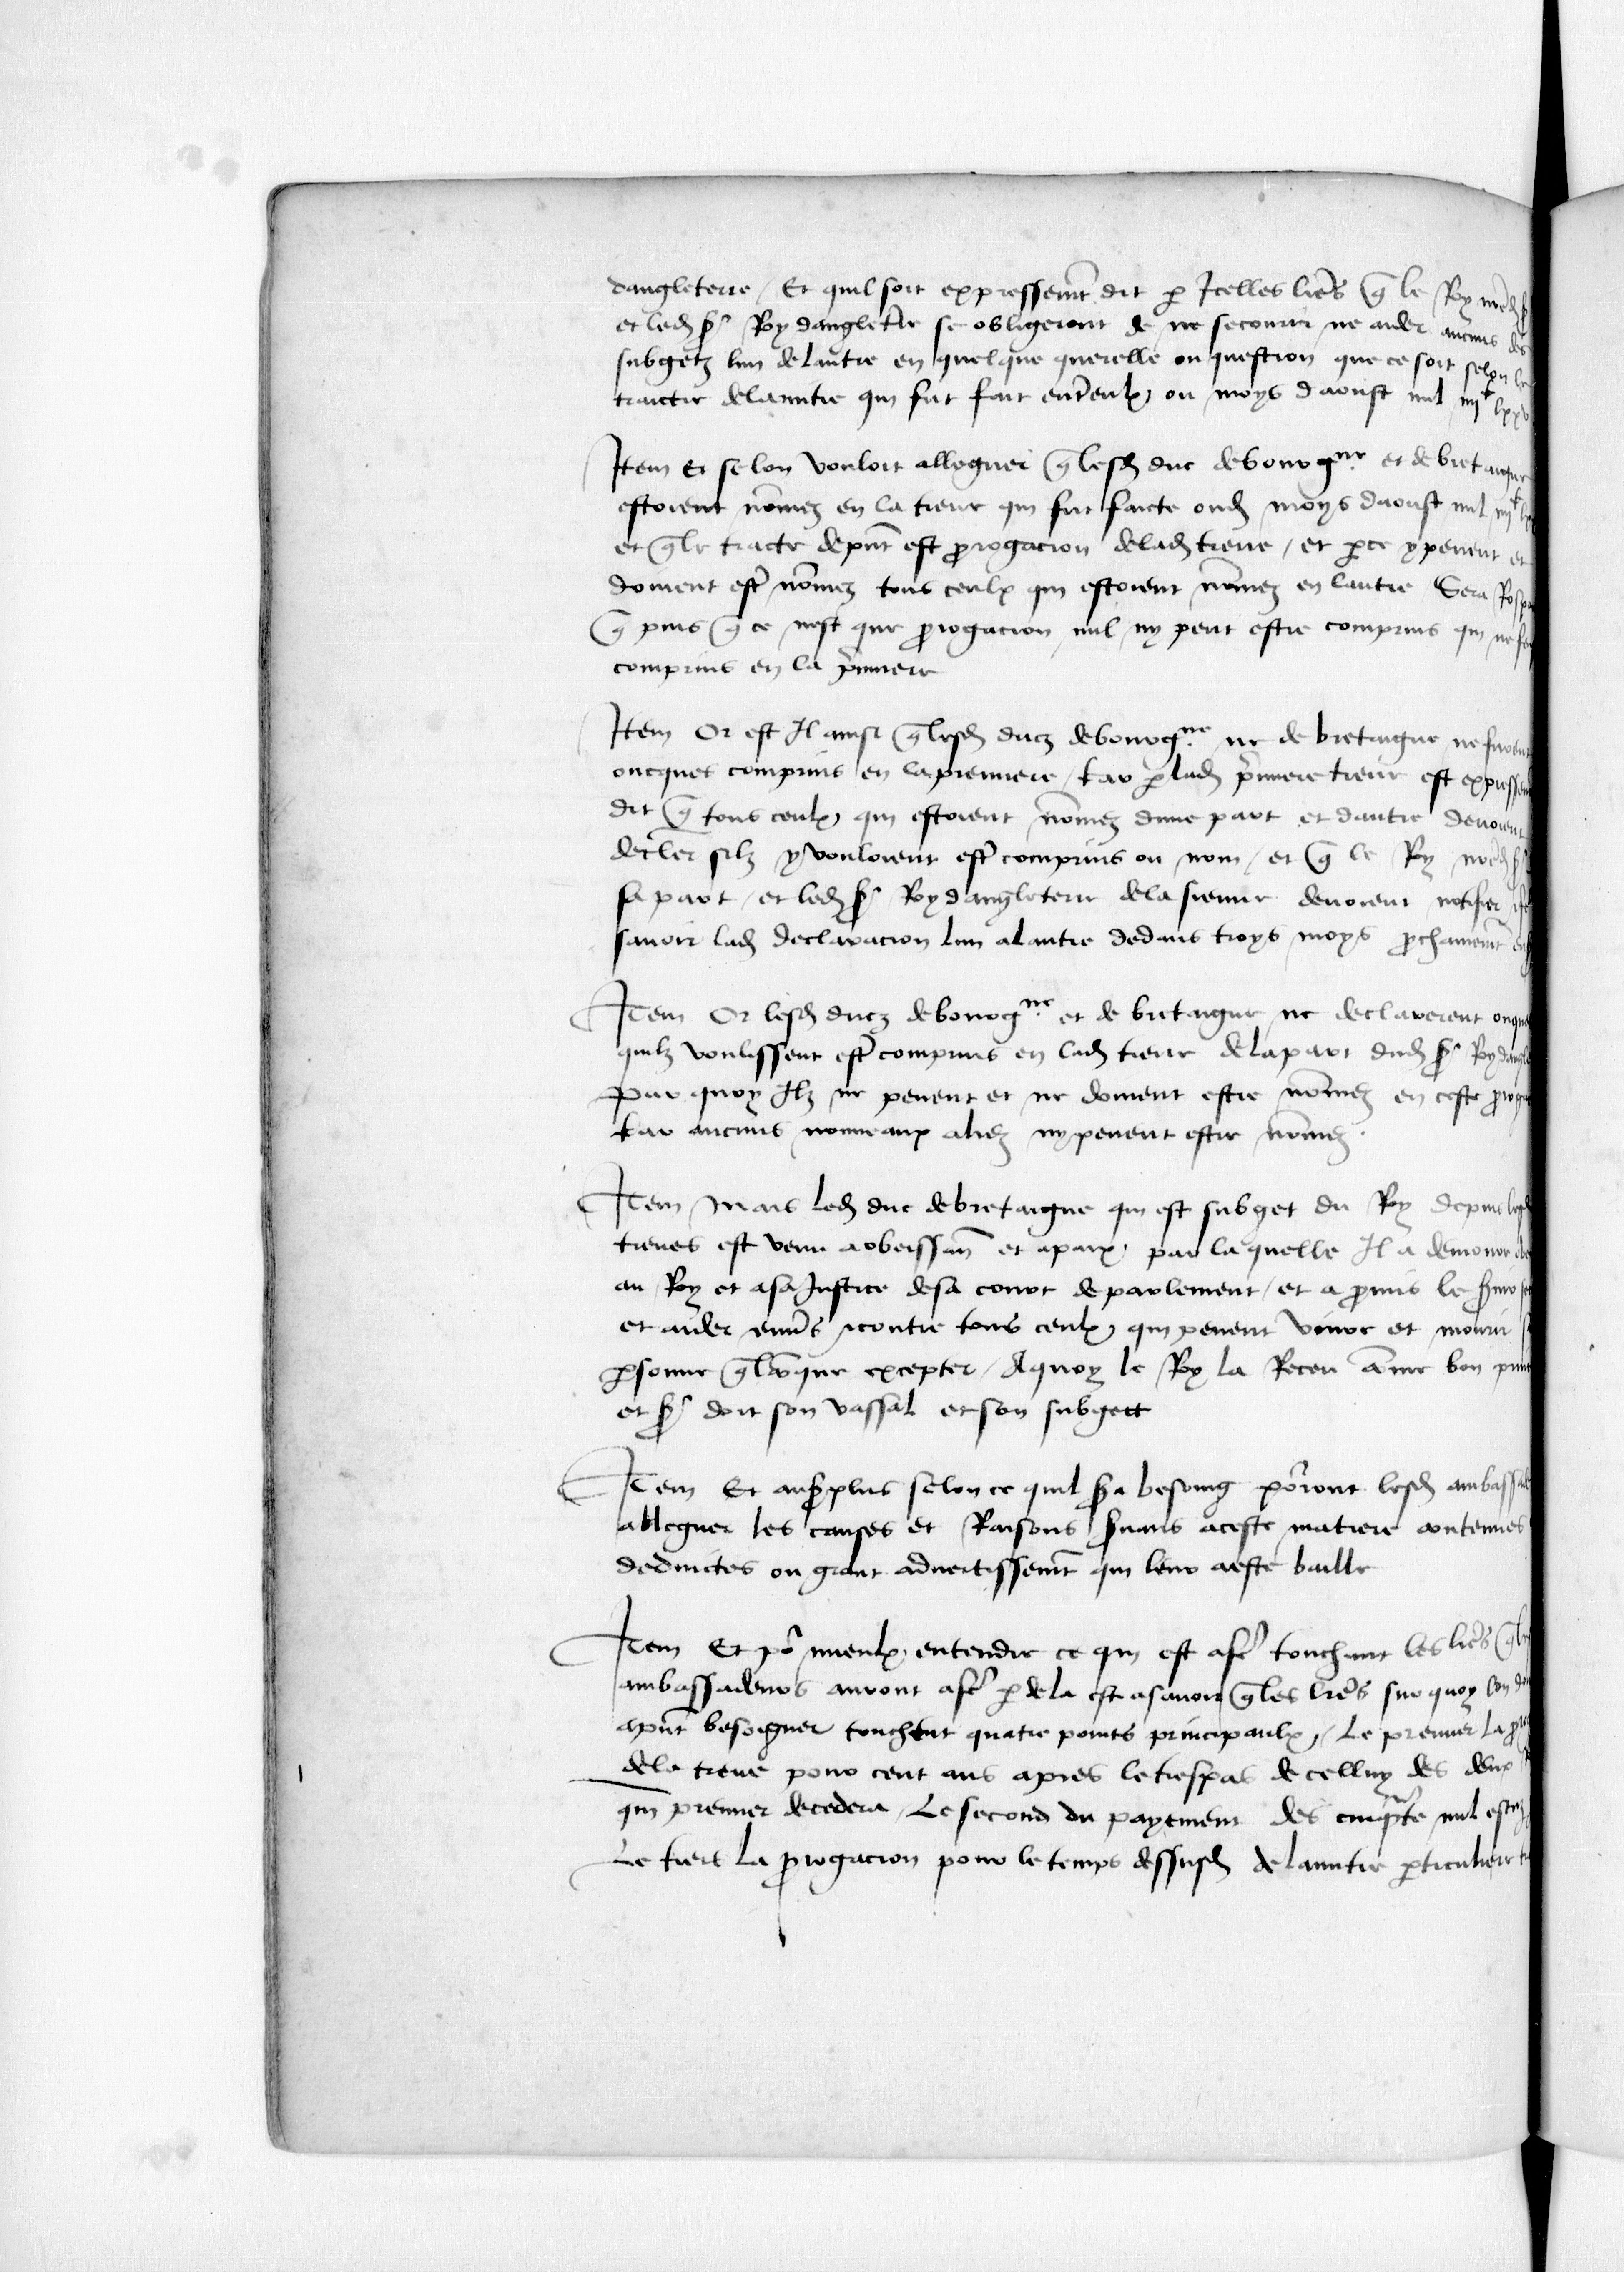 dangleterre / Et quil soit expressemt dit p Icelles lres q le Roy nredsr
et led sr Roy dangleterre se obligeront de ne secourir ne aider aucuns des
subgetz lun de lautre en quelque querelle ou question que ce soit selon le
traictie de lamitie qui fut fait entreulx ou moys daoust mil iiijc lxxv
Item Et se lon vouloit alleguer q lesd duc de bourgne et de bretaigne
estoient nommez en la treue qui fut faicte oud moys daoust mil iiijc
et q le traicte de pnt est progacion de lad treue / et pce y peuent et
doiuent estre nommez tous ceulx qui estoient nommez en lautre Sera
q puis q ce nest que progacion nul ny peut estre comprins qui ne
comprins en la premiere
Item Or est Il ainsi q lesd ducz de bourgne ne de bretaigne ne furent
oncques comprins en la premiere / kar p lad premiere treue est expressemt
dit q tous ceulx qui estoient nommez dune part et dautre deuoient
declrer silz y vouloient estre comprins ou non / et q le Roy nred sr
sa part / et led sr Roy dangleterre de la sienne deuoient notifier
sauoir lad declaracion lun a lautre dedans troys moys prochainemt
Item Or lesd ducz de bourgne et de bretaigne ne declarerent onques
quilz voulissent estre comprins en lad treue de la part dud sr Roy dangle
par quoy Ilz ne peuent et ne doiuent estre nommez en ceste proga
kar aucuns nouueaux aliez ny peuent estre nommez.
Item Mais led duc de bretaigne qui est subget du Roy depuis lesd
treues est venu a obeissance et a paix par la quelle Il a demoure
au Roy et a sa Justice de sa court de parlement / et a promis le seruir
et aider enuers & contre tous ceulx qui peuent viure et mourir
psonne qlconque excepter / A quoy le Roy la Receu comme bon prince
et sr doit son vassal et son subgect
Item Et au splus selon ce quil sera besoing porront lesd ambassade
alleguer les causes et Raisons seruans a ceste matiere contenues
deduictes ou grant aduertissemt qui leur a este baille
Item Et por mieulx entendre ce qui est a fere touchant les lres q les
ambassadeurs auront a fere p dela est asauoir q les lres sur quoy lon doit
apnt besoigner touchent quatre points principaulx / Le premier la
de la treue pour cent ans apres le trespas de celluy des deux
qui premier decedera / Le second du payement des cinqte mil escuz
Le tiers la progacion pour le temps dessusd de lamitie pticuliere